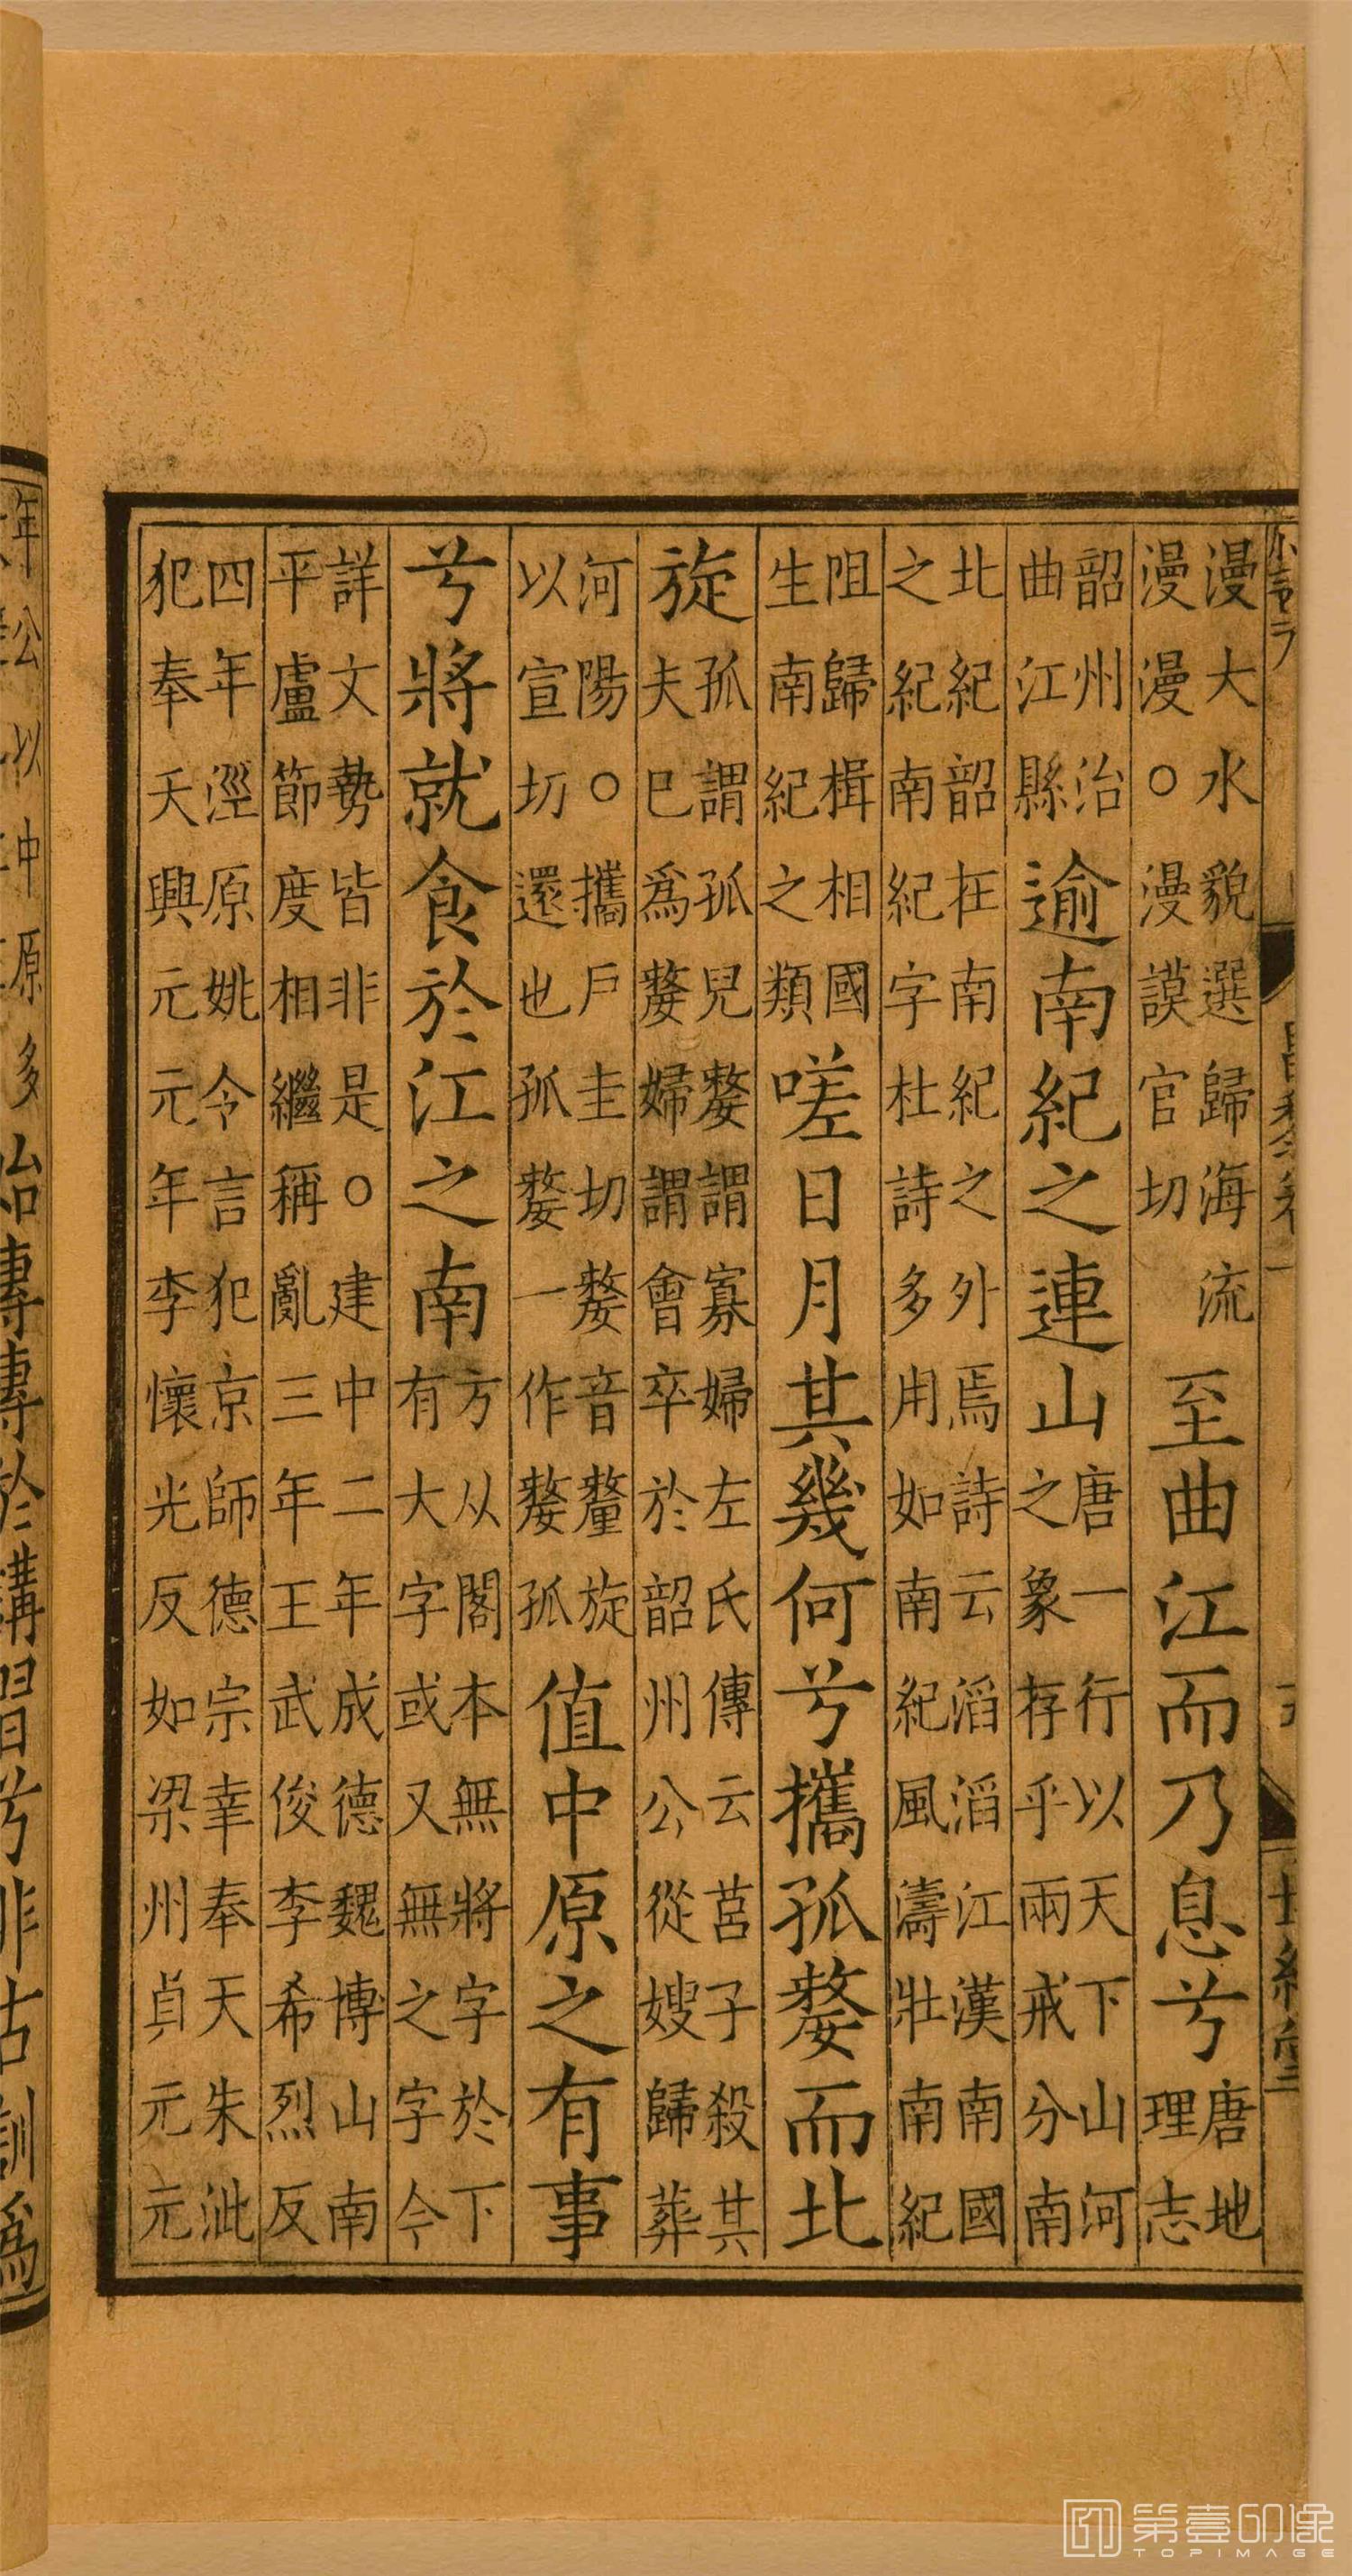 漫大水貌選歸海流漫漫○漫謨官切至曲江而乃息兮唐地理志
韶州治曲江縣逾南紀之連山唐一行以天下山河之象存乎兩戒分南
北紀韶在南紀之外焉詩云滔滔江漢南國之紀南紀字杜詩多用如南紀風濤壯南紀
阻歸楫相國生南紀之類嗟日月其幾何兮攜孤嫠而北
旋孤謂孤兒嫠謂寡婦左氏傳云莒子殺其夫巳爲嫠婦謂會卒於韶州公從嫂歸葬
河陽○攜戶圭切嫠音釐旋以宣切還也孤嫠一作嫠孤值中原之有事
兮將就食於江之南方从閣本無將字於下有大字或又無之字今
詳文勢皆非是○建中二年成德魏博山南平盧節度相繼稱亂三年王武俊李希烈反
四年涇原姚令言犯京師德宗幸奉天朱泚犯奉天興元元年李懷光反如梁州貞元元
年公以中原多
專專於講習兮非古訓爲
第壹印像
TOPIMAGE